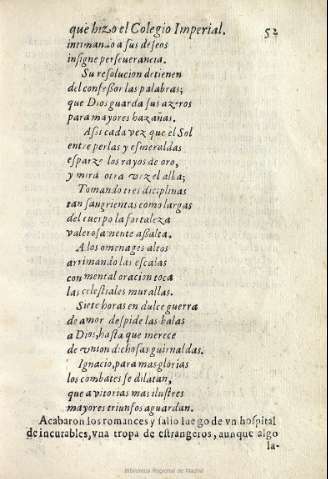 que hizo el Colegio Imperial. 52
intimando a sus deseos
insigne perseuerancia.
Su resolucion detienen
del confessor las palabras;
que Dios guarda sus azeros
para mayores hazañas.
Assi cada vez que el Sol
entre perlas y esmeraldas
esparze los rayos de oro,
y mira otra vez el alba;
Tomando tres diciplinas
tan sangrientas como largas
del cuerpo la fortaleza
valerosamente assalta.
A los omenages altos
arrimando las escalas
con mental oracion toca
las celestiales murallas.
Siete horas en dulce guerra
de amor despide las balas
a Dios, hasta que merece
de vnion dichosas guirnaldas.
Ignacio, para mas glorias
los combates se dilatan,
que a vitorias mas ilustres
mayores triunfos aguardan.
Acabaron los romances y salio luego de vn hospital
de incurables, vna tropa de estrangeros, aunque algo
la-
Biblioteca Regional de Madrid